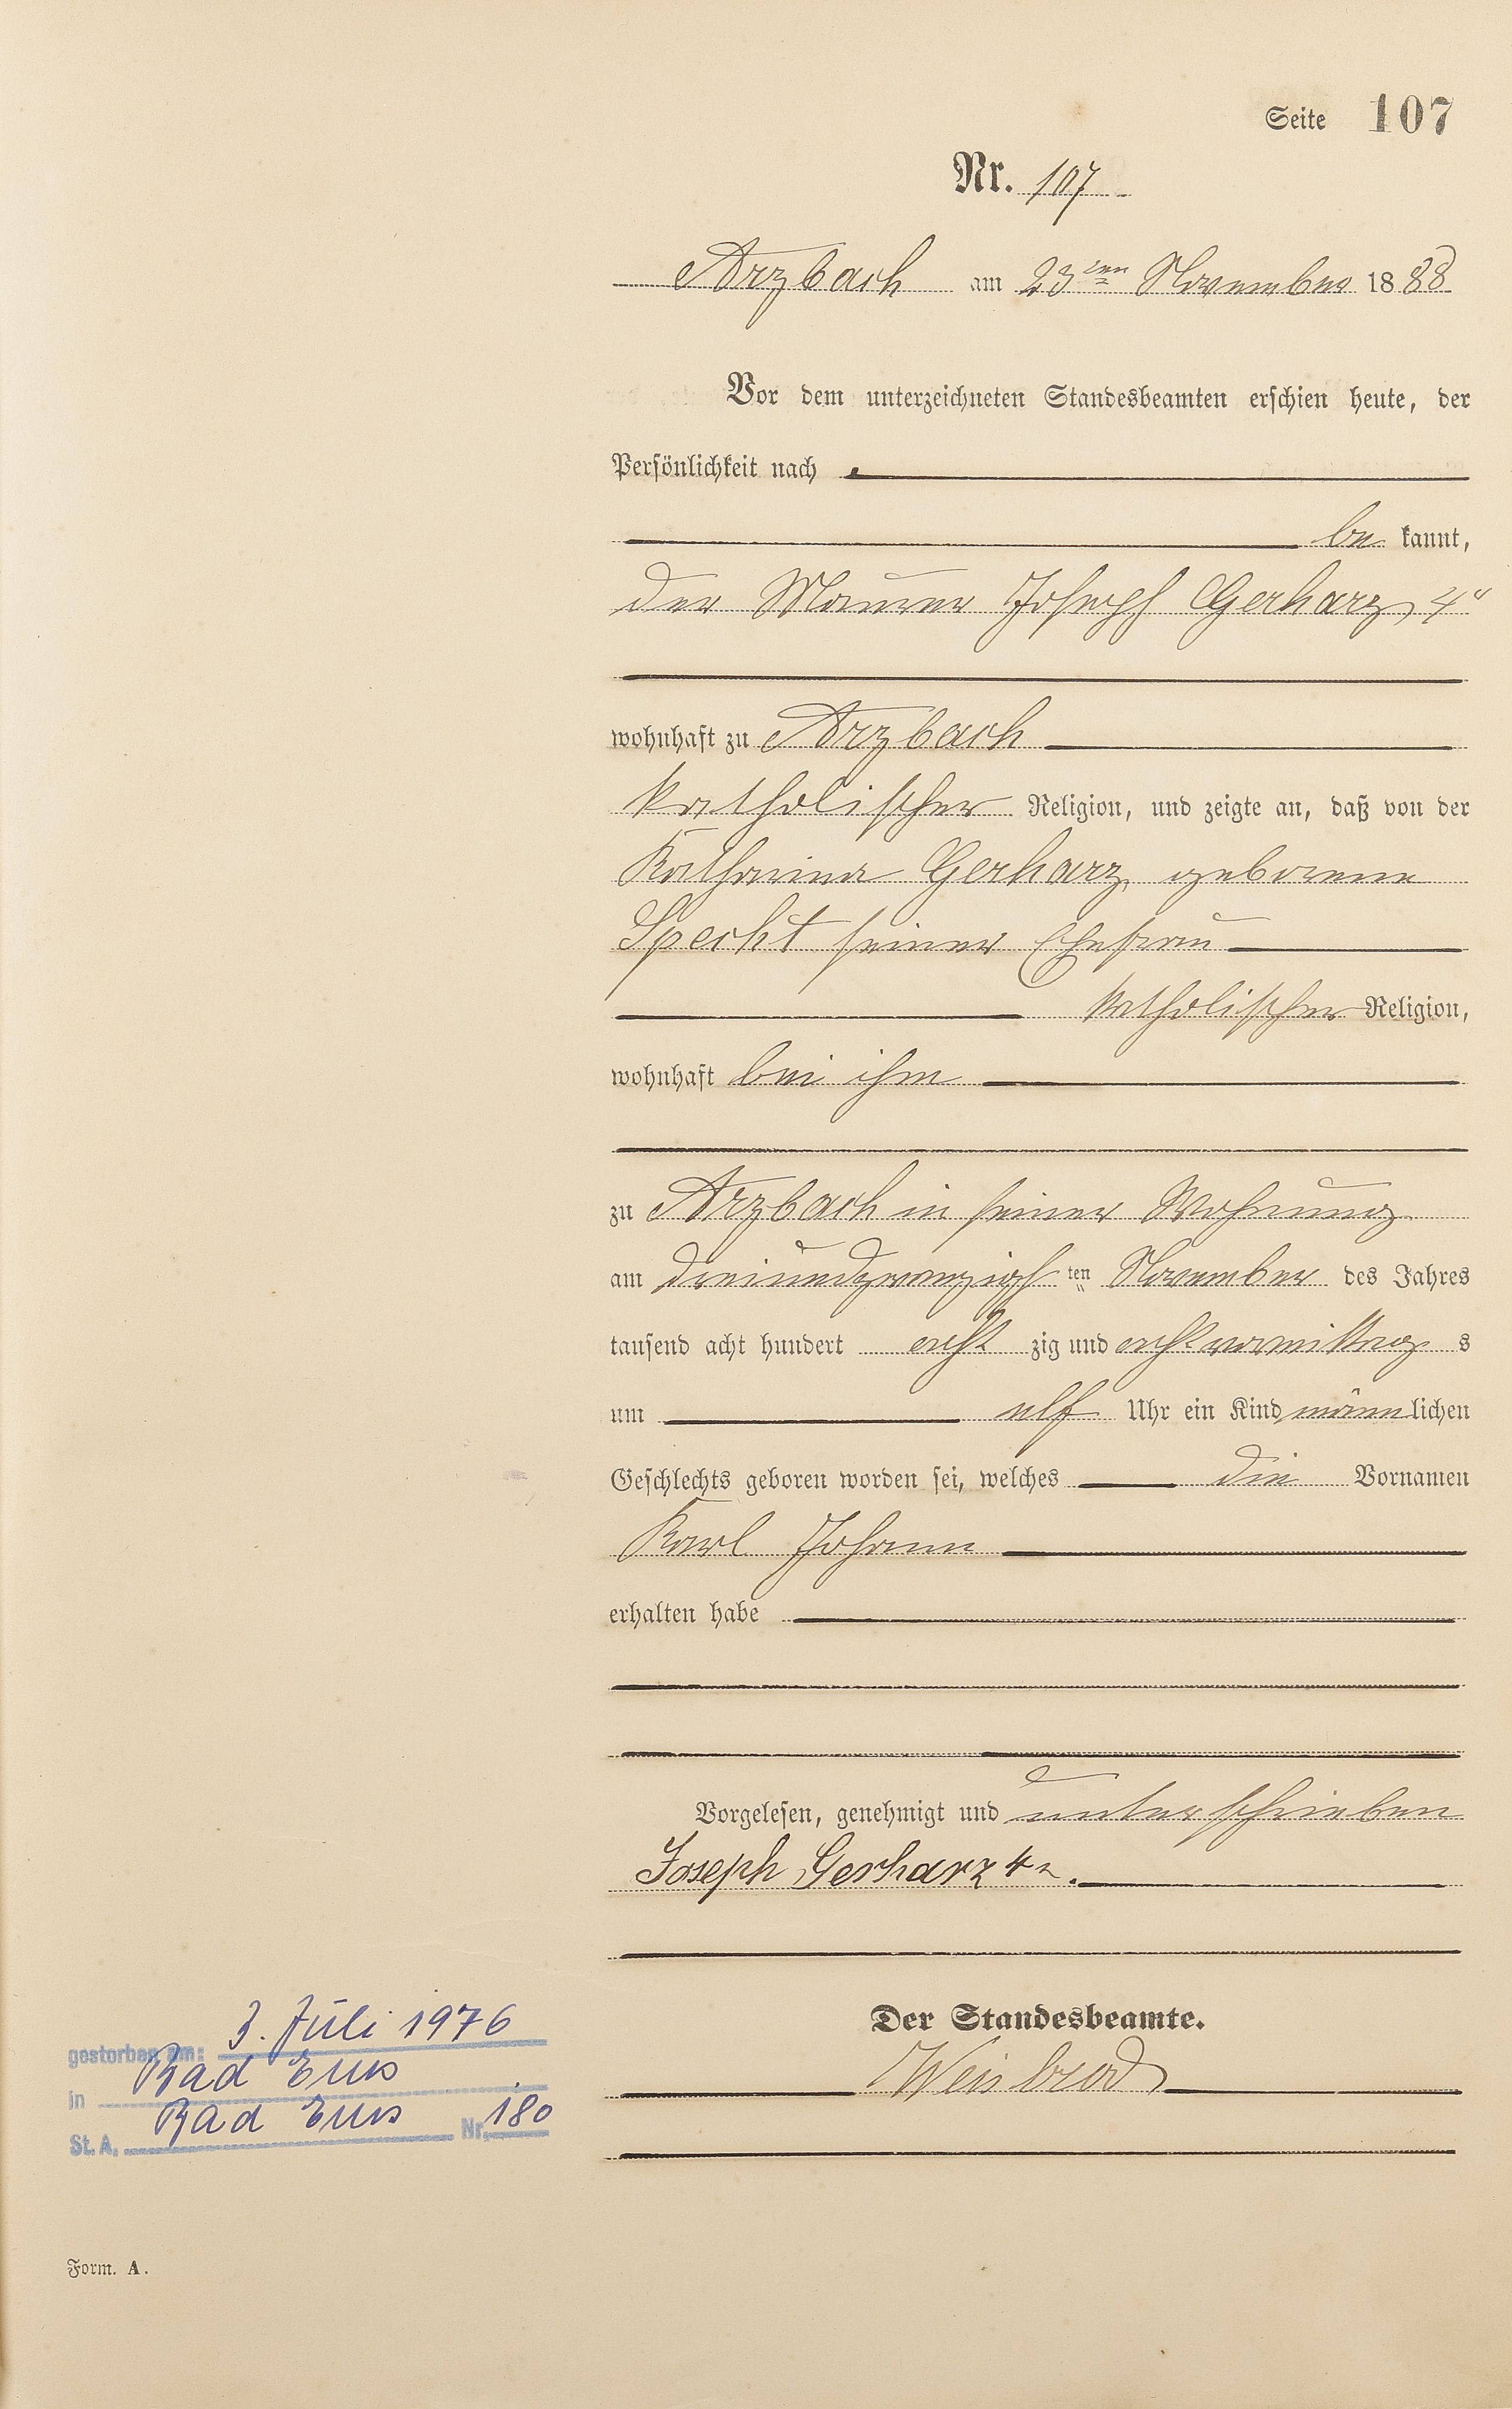 Seite 107
Nr. 107
Arzbach am 23ten November 1888
Vor dem unterzeichneten Standesbeamten erschien heute, der
Persönlichkeit nach
be kannt,
der Maurer Joseph Gerharz, 4"
wohnhaft zu Arzbach
katholischer Religion, und zeigte an, daß von der
Katharina Gerharz, geborene
Specht seiner Ehefrau
katholischer Religion,
wohnhaft bei ihm
zu Arzbach in seiner Wohnung
am dreiundzwanzigsten November des Jahres
tausend acht hundert acht zig und acht vormittag s
um elf Uhr ein Kind männlichen
Geschlechts geboren worden sei, welches die Vornamen
Karl Johann
erhalten habe
Vorgelesen, genehmigt und unterschrieben
Joseph Gerharz 4r.
Der Standesbeamte.
Weisbrod
gestorben am: 3. Juli 1976
in Bad Ems
St. A. Bad Ems Nr. 180
Form. A.